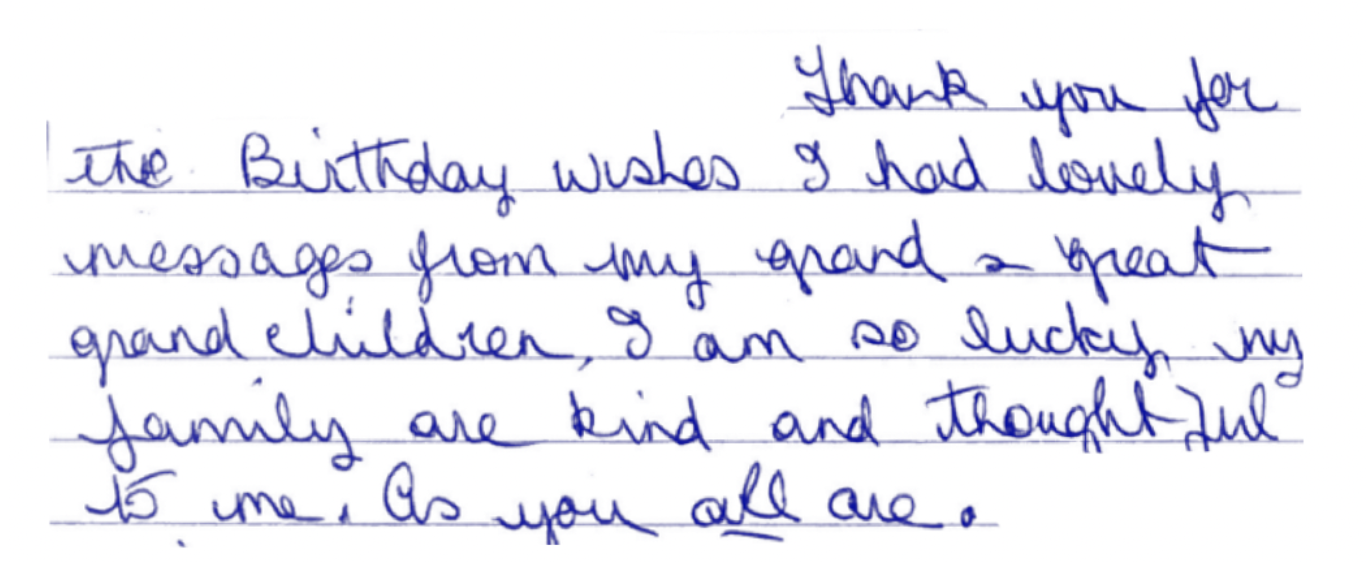 Thank you for
the Birthday wishes I had lovely
messages from my grand & great
grand children, I am so lucky, my
family are kind and thoughtful
to me. As you all are.